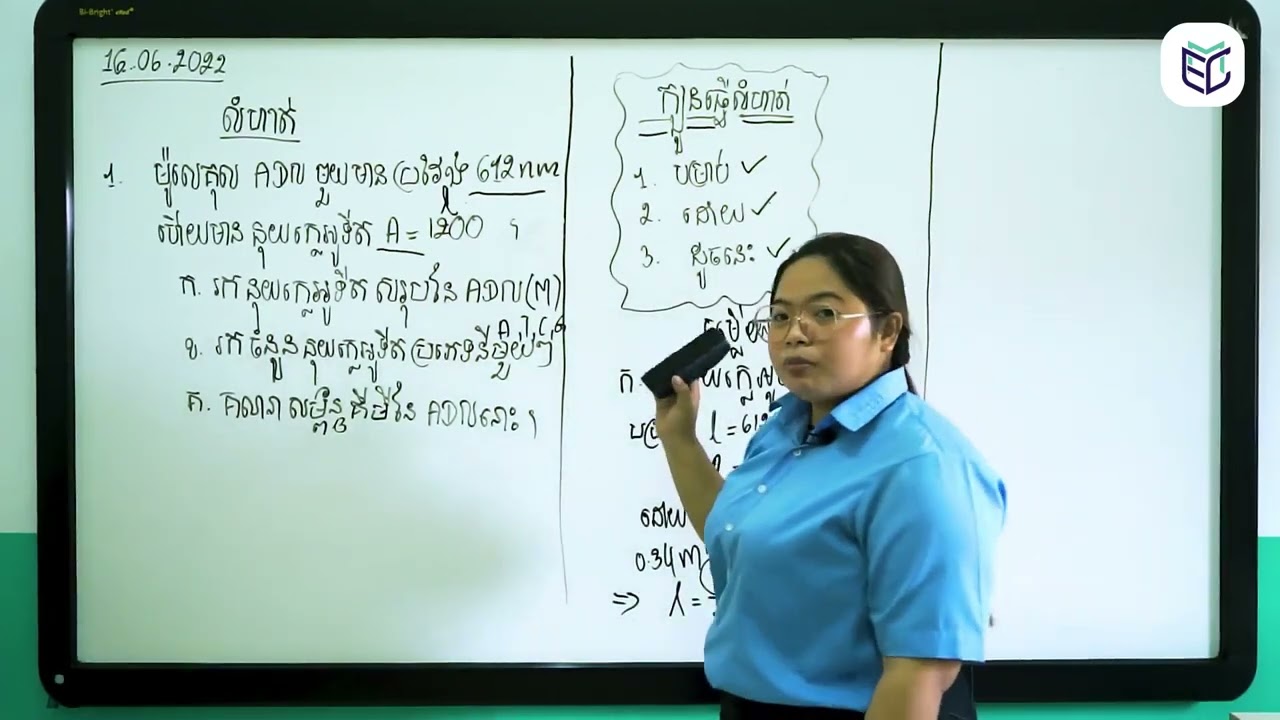 Bi-Bright
16.06.2022
លំហាត់
1. ម៉ូលេគុល ADN មួយមាន ប្រវែង 612nm
ហើយមាន នុយក្លេអូទីត A = 1200 ។
ក. រក នុយក្លេអូទីត សរុបនៃ ADN(n)
A T C G
ខ. រក ចំនួន នុយក្លេអូទីត ប្រភេទនីមួយៗ
គ. គណនា សម្ព័ន្ធ គីមី នៃ ADN នោះ ។
ក្បួនធ្វើលំហាត់
1. បម្រាប់ ✓
2. ដោយ ✓
3. ដូចនេះ ✓
ក.
l = 612
ដោយ
0.34
⇒ l =